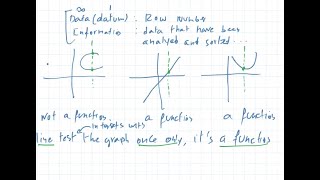 Data (datum) : Row number
Information : data that have been
analysed and sorted...
Not a function. a function a function
intersects with
line test the graph once only, it's a function